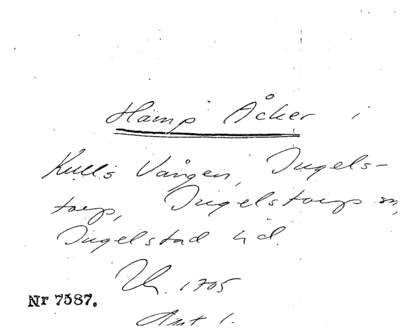 Hamp Åker i
Kulls Vången, Ingels-
torp, Ingelstorp sn,
Ingelstad hd.
1705
Nr 7587.
Ant 1.